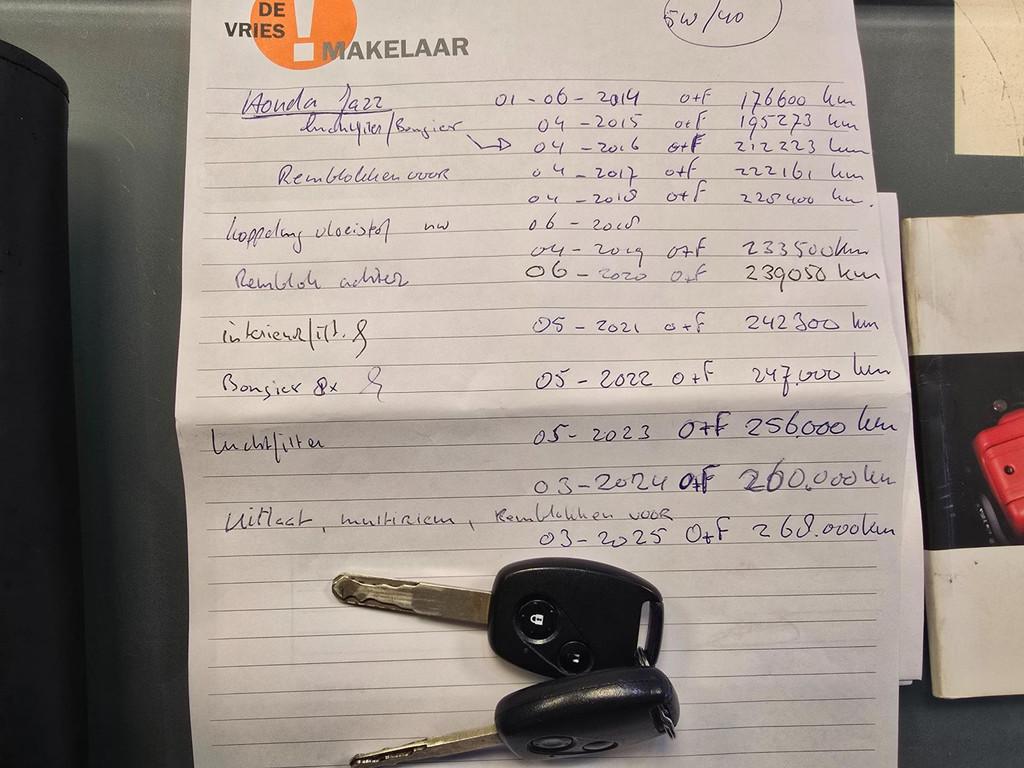 DE
VRIES
!
MAKELAAR
5W/40
Honda Jazz 01-06-2014 o+F 176600 km
luchtfilter/Bougies 04-2015 o+F 195273 km
04-2016 o+F 212223 km
Remblokken voor 04-2017 o+F 222161 km
04-2018 o+F 225400 km.
koppeling vloeistof nw 06-2018
04-2019 o+F 233500 km
Remblok achter 06-2020 o+F 239050 km
interieurfilt. 05-2021 o+F 242300 km
Bougies 8x 05-2022 o+F 247.000 km
luchtfilter 05-2023 O+F 256.000 km
03-2024 O+F 260.000 km
Uitlaat, multiriem, Remblokken voor
03-2025 O+F 268.000km